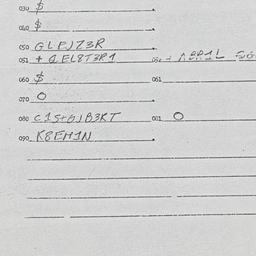 030 $
040 $
050 GLPJZ3R
051 + QEL8T3R1
060 $ 061
070 O
080 C1S+GJB3RT 081 O
090 K8EM1N